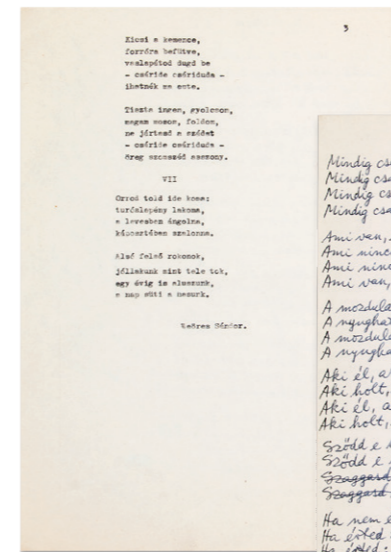 3
Kicsi a kemence,
forróra befütve,
vaslapátod dugd be
- cséride csériduda -
ihatnék ma este.
Tiszta ingem, gyolcsom,
magam mosom, foldom,
ne jártasd a szádat
- cséride csériduda -
öreg szomszéd asszony.
VII
Orrod told ide koma:
lakoma,
a levesben ángolna,
káposztában szalonna.
Alsó felső rokonok,
jóllakunk mint tele
egy évig is aluszunk,
a nap süti a hasunk.
Weöres Sándor.
Mindig
Mindig
Mindig
Mindig
Ami van,
Ami
Ami
Ami van,
A
A
A
A
Aki él, a
Aki holt,
Aki él, a
Aki holt,
Sződd e
Sződd e
Szaggasd
Szaggasd
Ha nem
Ha érted